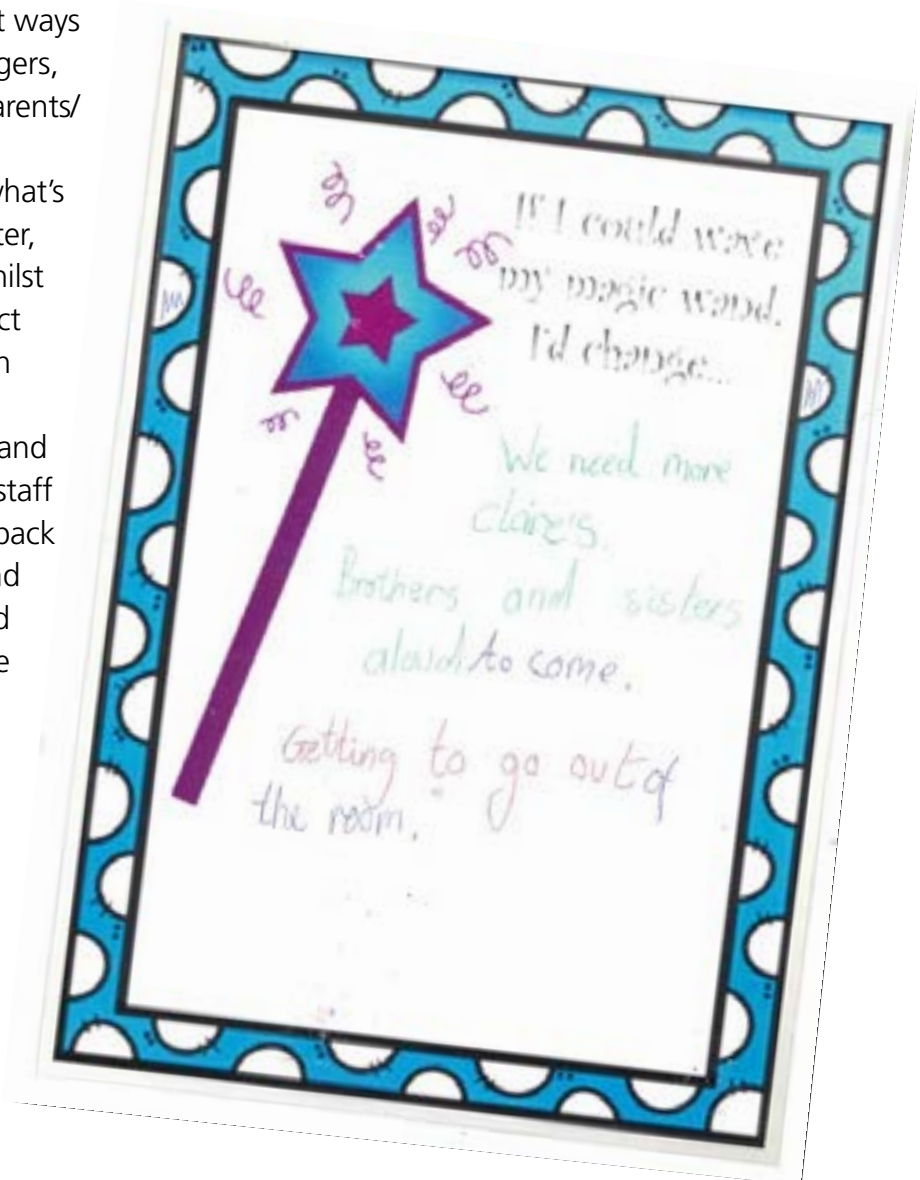 t ways
gers,
arents/
what's
ter,
hilst
ct
n
and
staff
back
nd
d
e
If I could wave
my magic wand.
I'd change...
We need more
Claire's.
Brothers and sisters
aloud to come.
Getting to go out of
the room.